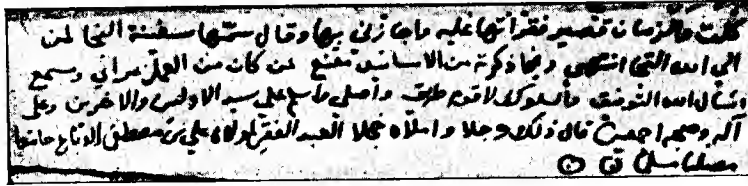 كملت والزمان قصير فقرأتها عليه واجازني بها وقال سمّها سفينة النجا لمن
الى الله التجا انتهى وبما ذكرته من الاسانيد تقنع من كان من العمل بمرأى ومسمع
ونسأل الله التوفيق والسلوك لاقوم طريق وأصلي وأسلم على سيد الاولين والاخرين وعلى
آله وصحبه اجمعين قال ذلك وجلا واملاه خجلا العبد الفقير لمولاه علي بن مصطفى الدباغ حامدا
مصليا مسلما